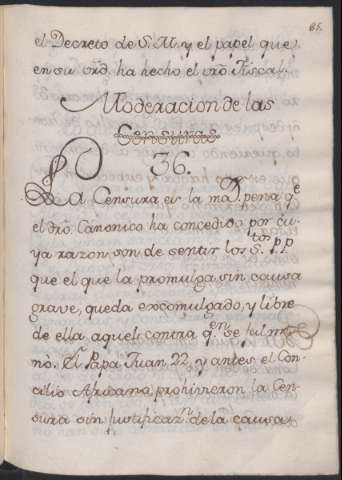 85.
el Decreto de S. M. y el papel que
en su vrd. ha hecho el vro. Fiscal.
Moderacion de las
Censuras
36.
La Censura es la mas. pena qe.
el dro. Canonico ha concedido por cu-
ya razon son de sentir los Stos. P.P
que el que la promulga sin causa
grave, queda excomulgado, y libre
de ella aquel contra qn. se fulmi-
nò. El Papa Juan 22, y antes el Con-
cilio Africano prohivieron la Cen-
sura sin justificazn. de la causa,